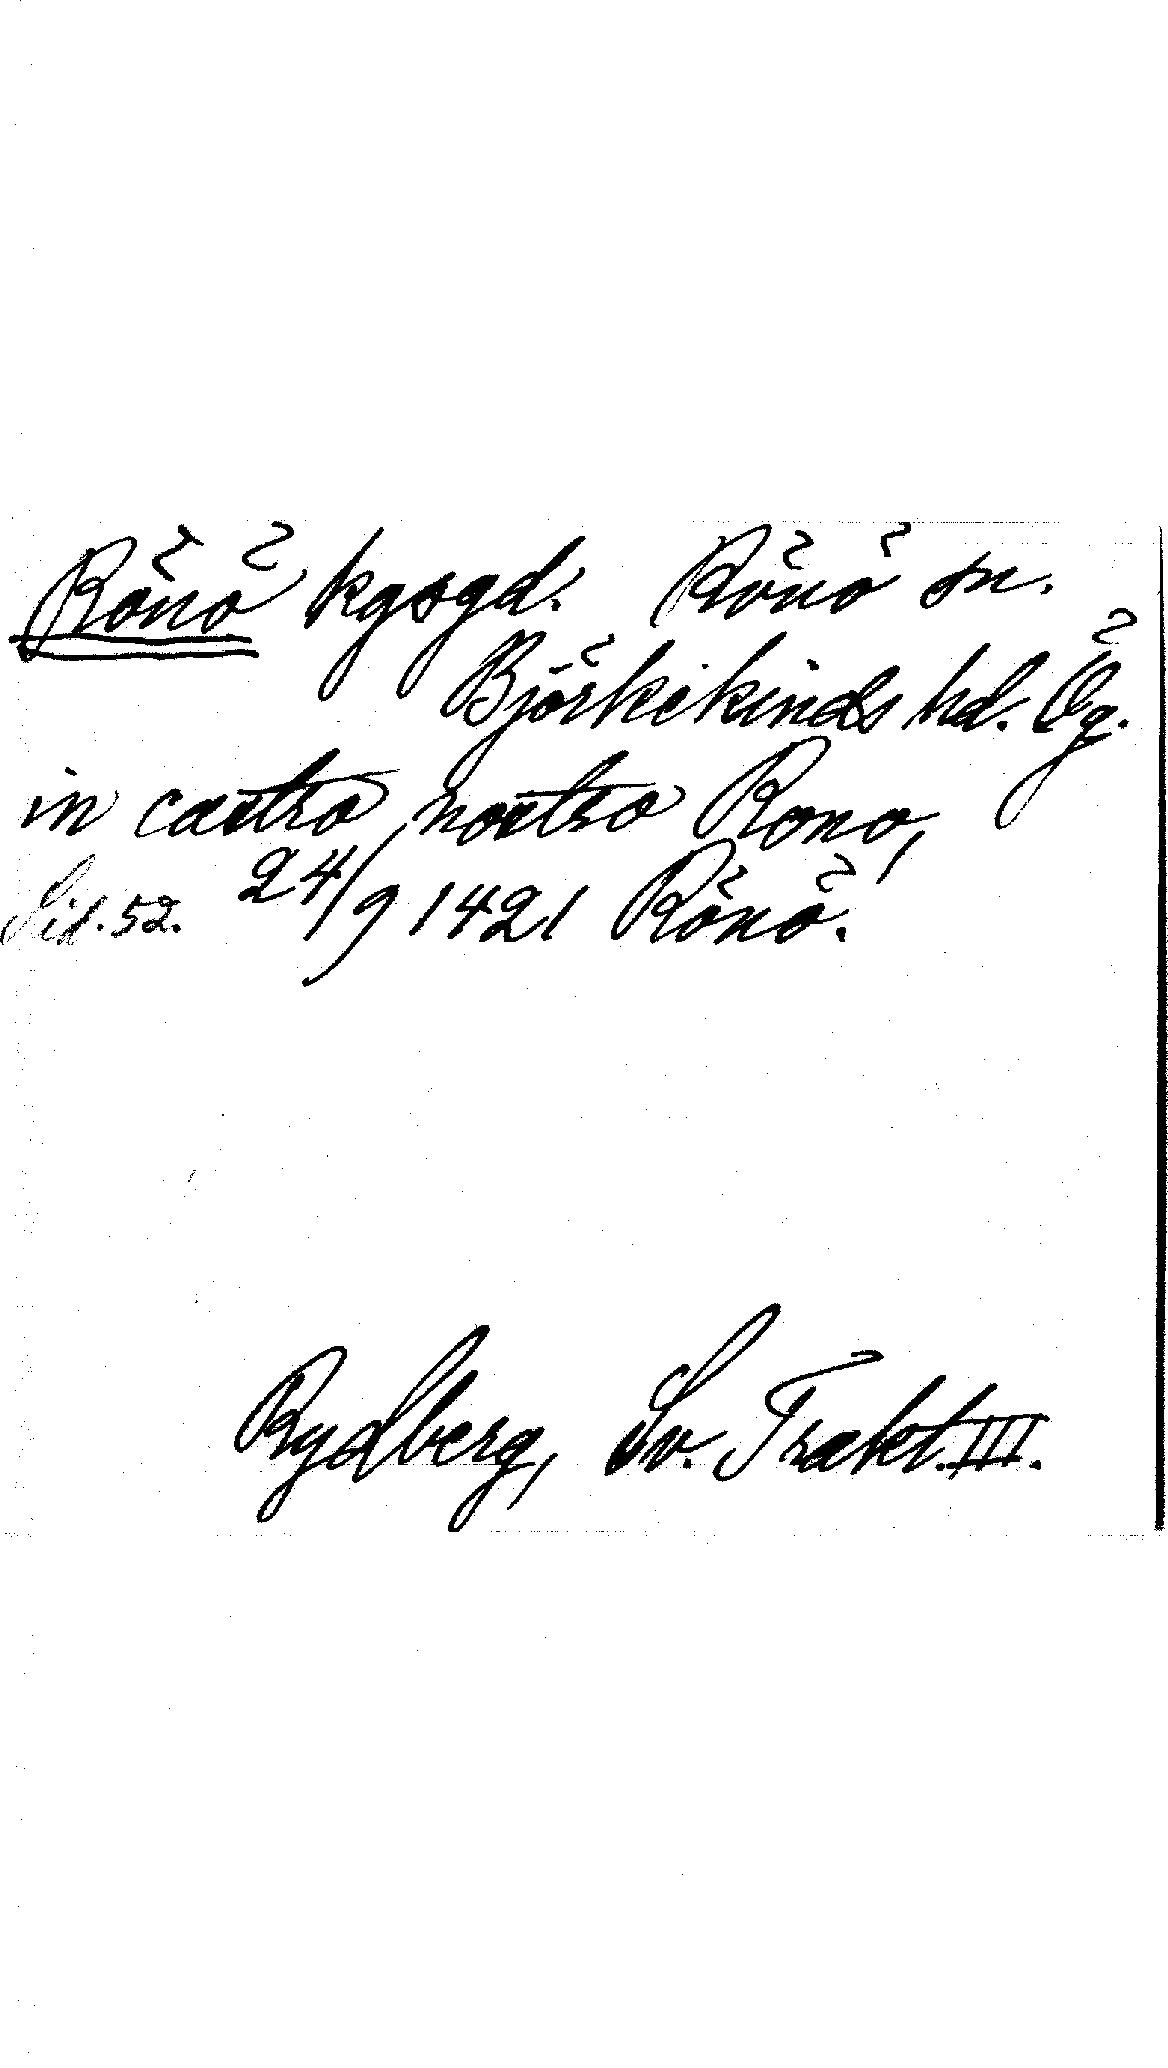 Rönö kgsgd. Rönö sn.
Björkekinds hd. Ög.
in castro nostro Rono,
Sid. 52. 24/9 1421 Rönö.
Rydberg, Sv. Trakt. III.